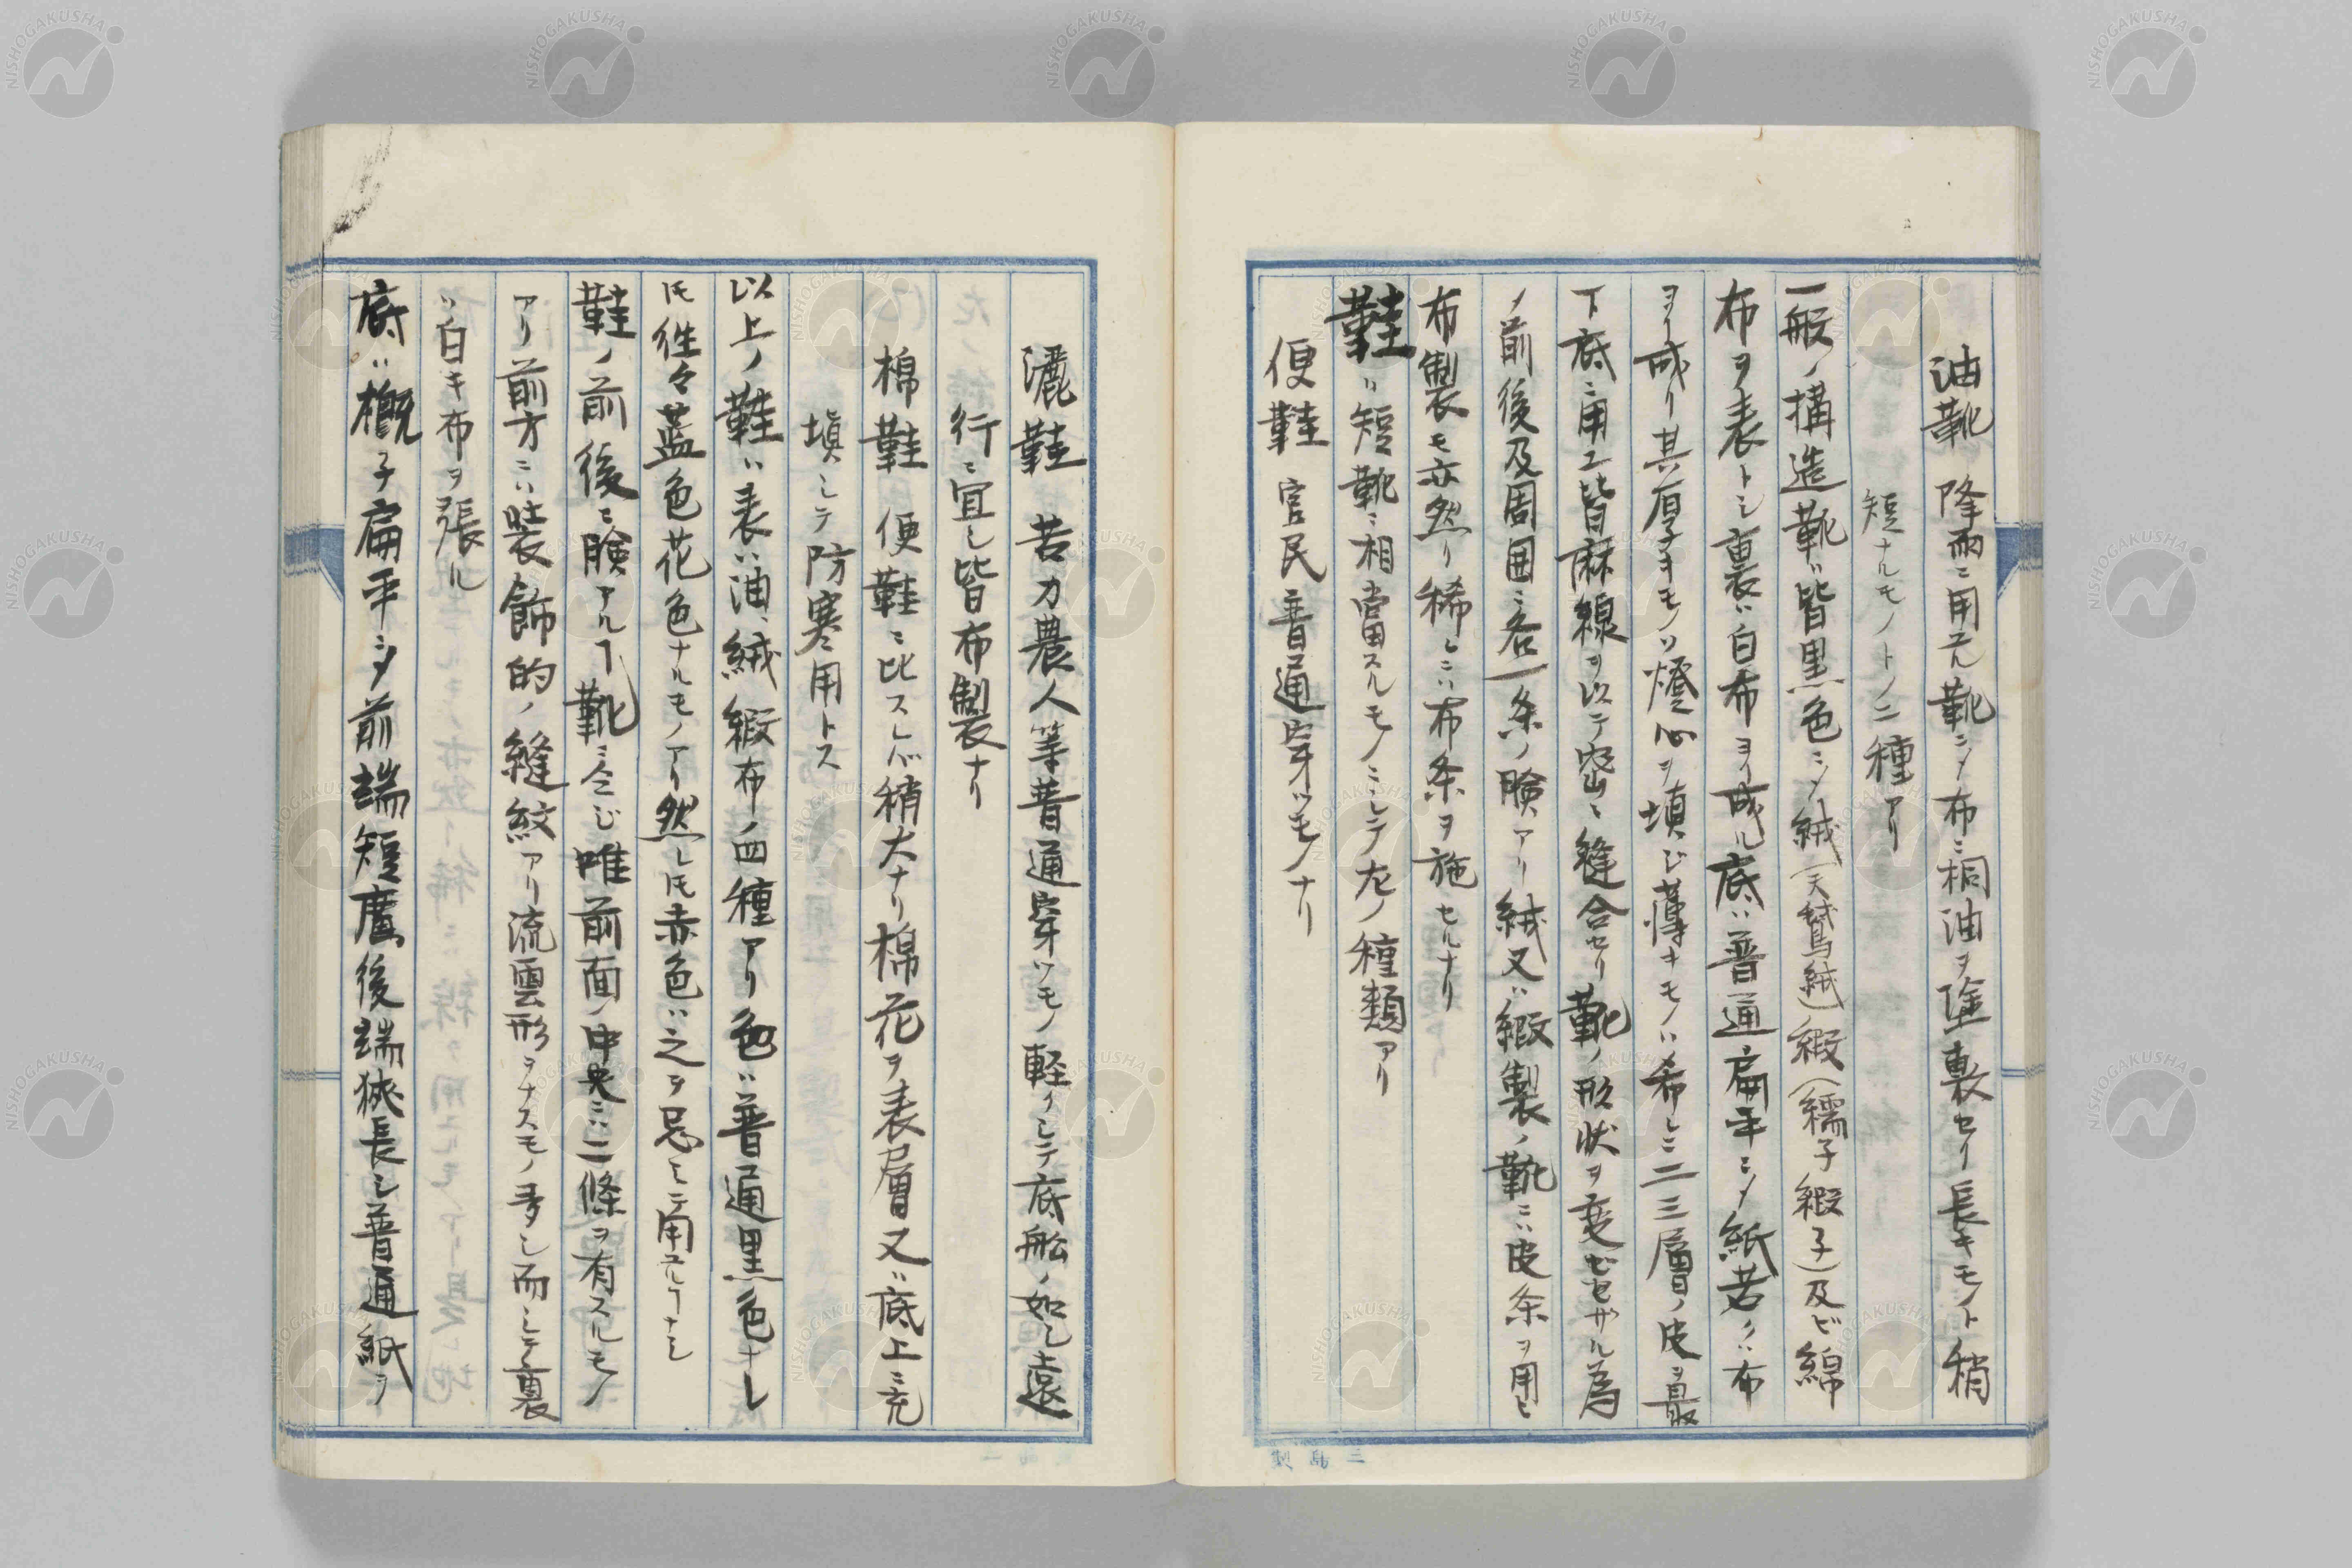 油靴 降雨ニ用ユル靴ニシテ布ニ桐油ヲ塗裏セリ長キモノト稍
短ナルモノトノ二種アリ
一般ノ構造靴ハ皆黒色ニシテ絨(天鵞絨)緞(繻子緞子)及ビ綿
布ヲ表トシ裏ハ白布ヨリ成ル底ハ普通扁平ニシテ紙若クハ布
ヨリ成リ其厚キモノハ燈心ヲ填ジ薄キモノハ希レニ二三層ノ皮ヲ最
下底ニ用ユ皆麻線ヲ以テ密ニ縫合セリ靴ノ形状ヲ変ゼセザル為
メ前後及周囲ニ各一条ノ臉アリ絨又ハ緞製ノ靴ニハ皮条ヲ用ヒ
布製モ亦然リ稀レニハ布条ヲ施セルナリ
鞋ハ短靴ニ相当スルモノニシテ左ノ種類アリ
便鞋 官民普通穿ツモノナリ
灑鞋 苦力農人等普通穿ツモノ軽クシテ底船ノ如シ遠
行ニ宜シ皆布製ナリ
棉鞋 便鞋ニ比スレバ稍大ナリ棉花ヲ表層又ハ底上ニ充
填シテ防寒用トス
以上ノ鞋ハ表ハ油、絨緞布ノ四種アリ色ハ普通黒色ナレ
𪜈往々藍色花色ナルモノアリ然レ𪜈赤色ハ之ヲ忌ミテ用ユルヿナシ
鞋ノ前後ニ臉アルヿ靴ニ仝ジ唯前面ノ中央ニハ二條ヲ有スルモノ
アリ前方ニハ装飾的ノ縫紋アリ流雲形ヲナスモノ多シ而シテ裏
ハ白キ布ヲ張ル
底ハ概子扁平ニシテ前端短廣後端狭長シ普通紙ヲ
三島製